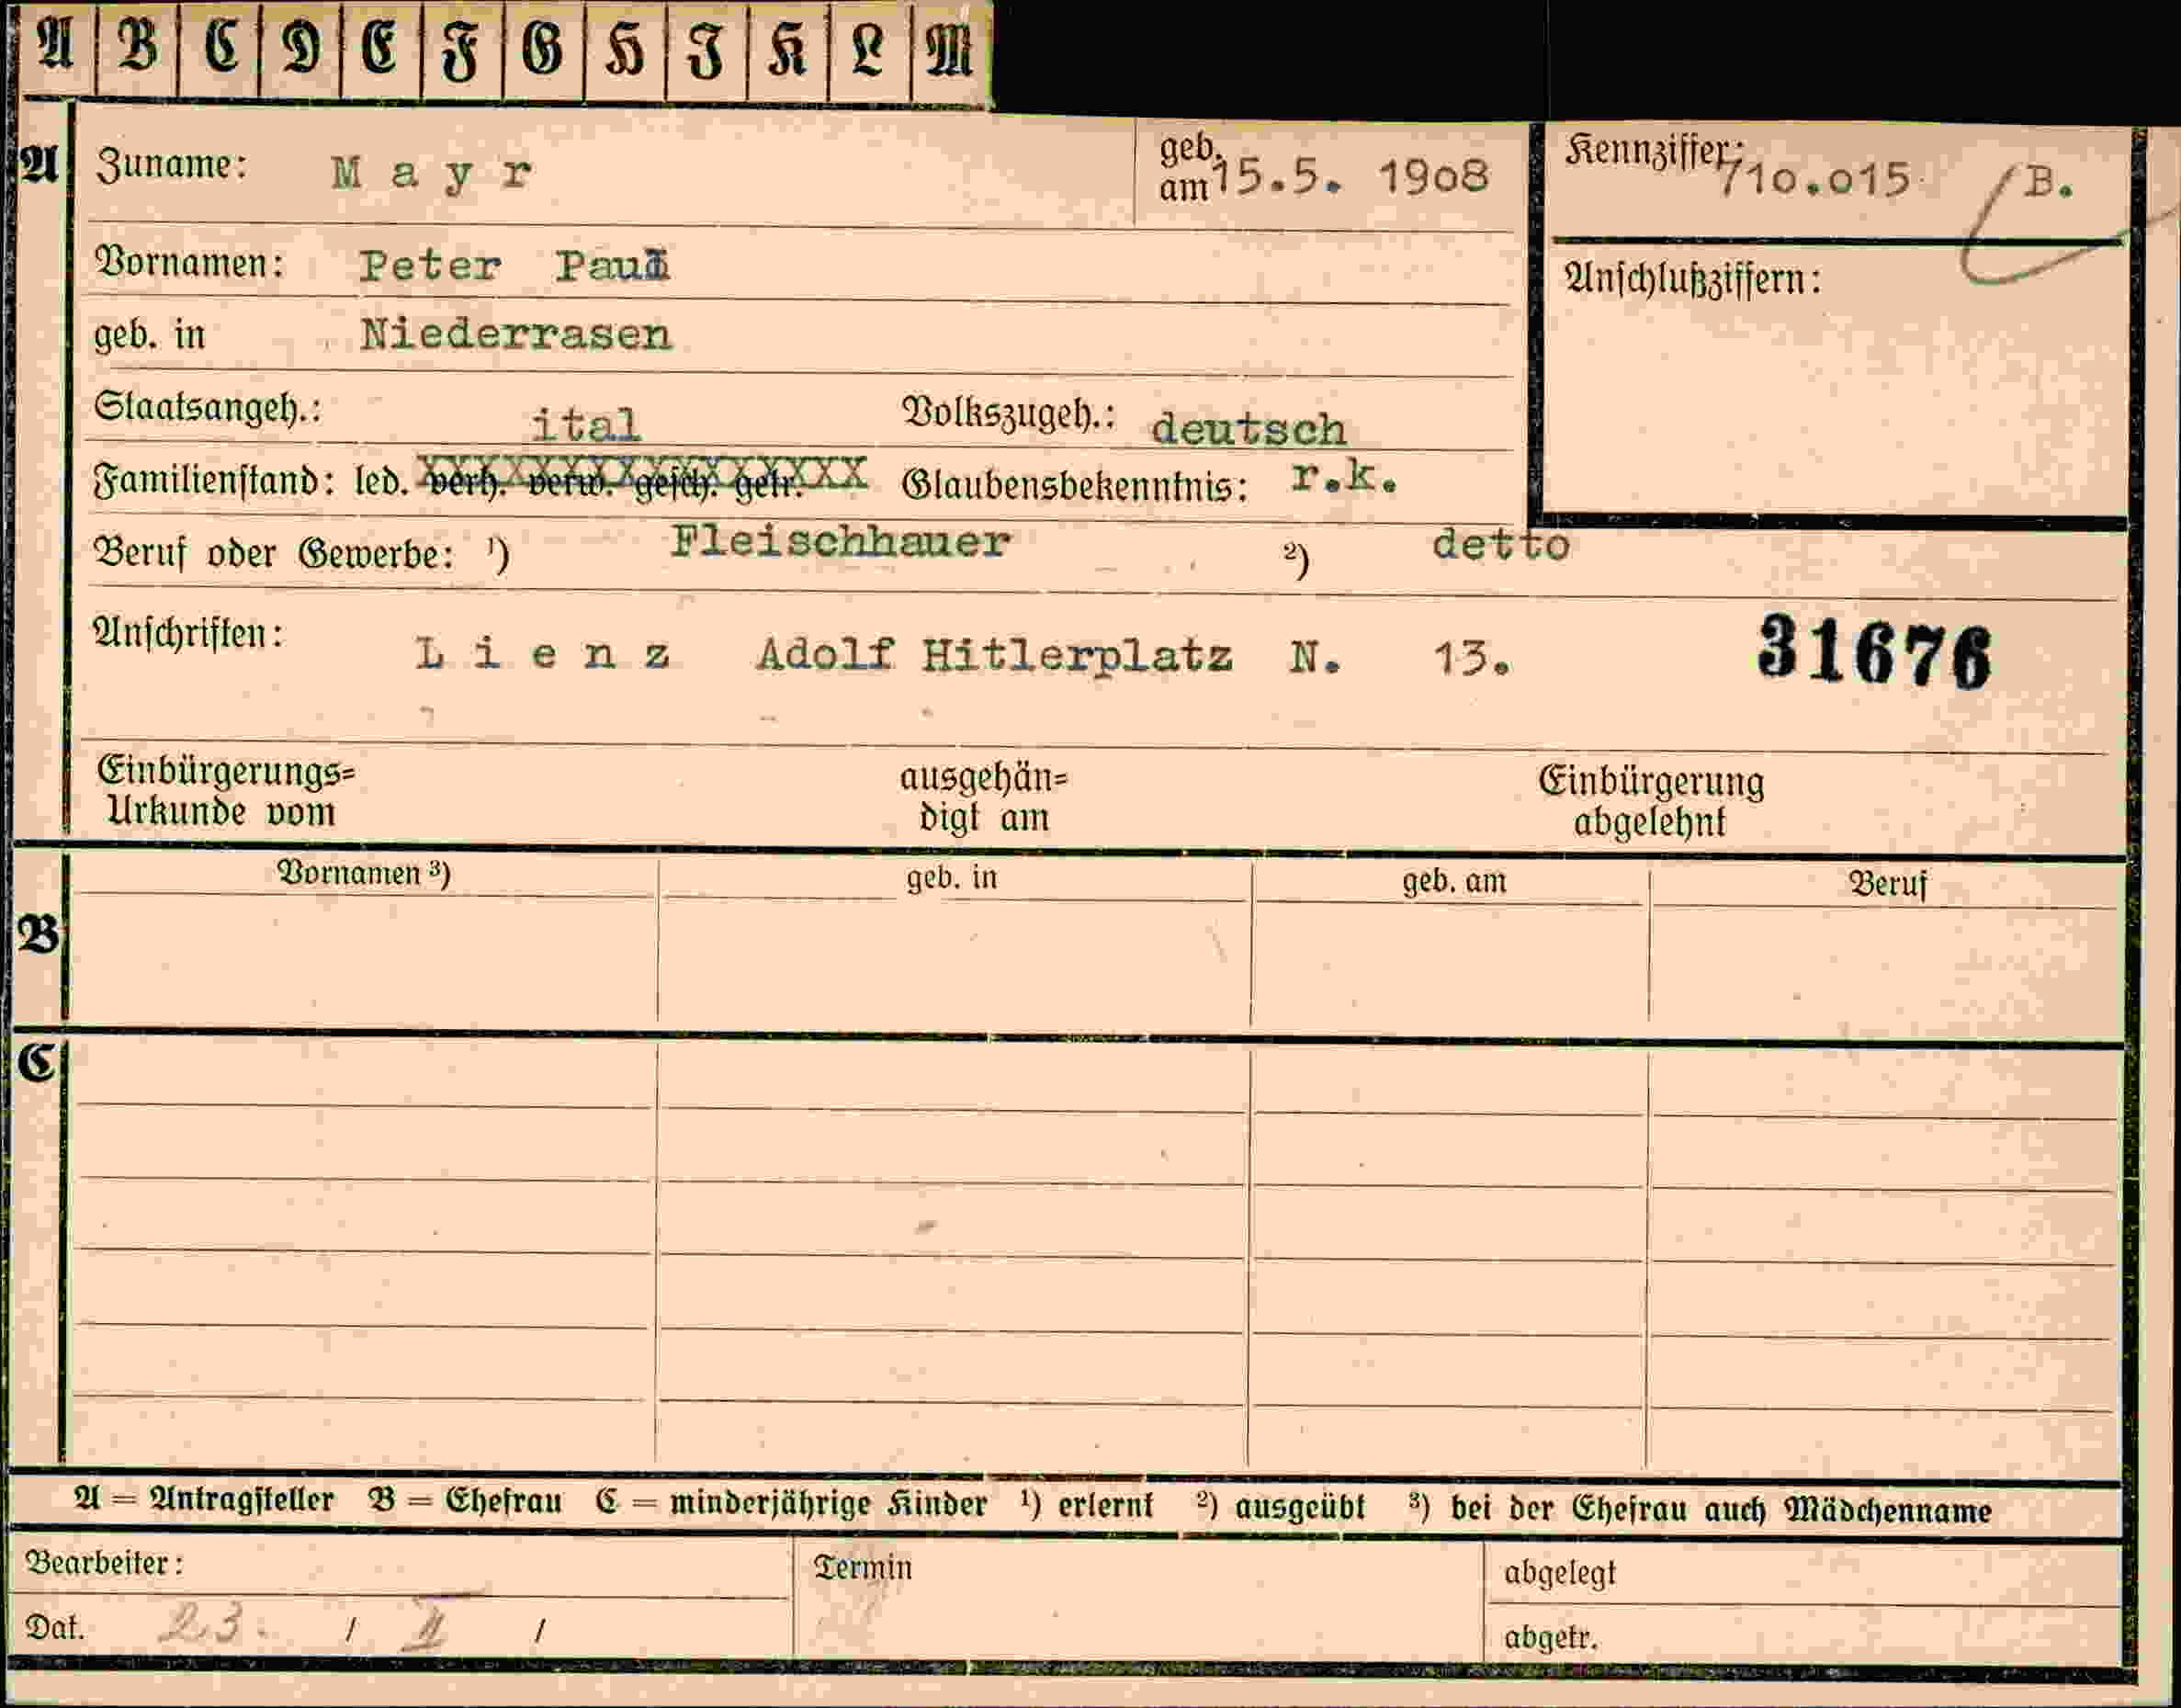 A B C D E F G H J K L M
A
Zuname: Mayr geb. am 15.5. 1908 Kennziffer: 710.015 /B.
Vornamen: Peter Paul
Anschlußziffern:
geb. in Niederrasen
Staatsangeh.: ital Volkszugeh.: deutsch
Familienstand: led. verh. verw. gesch. getr. Glaubensbekenntnis: r.k.
Beruf oder Gewerbe: ¹) Fleischhauer ²) detto
Anschriften: Lienz Adolf Hitlerplatz N. 13. 31676
Einbürgerungs= ausgehän= Einbürgerung
Urkunde vom digt am abgelehnt
B
Vornamen ³) geb. in geb. am Beruf
C
A = Antragsteller B = Ehefrau C = minderjährige Kinder ¹) erlernt ²) ausgeübt ³) bei der Ehefrau auch Mädchenname
Bearbeiter: Termin abgelegt
Dat. 23. / II / abgetr.